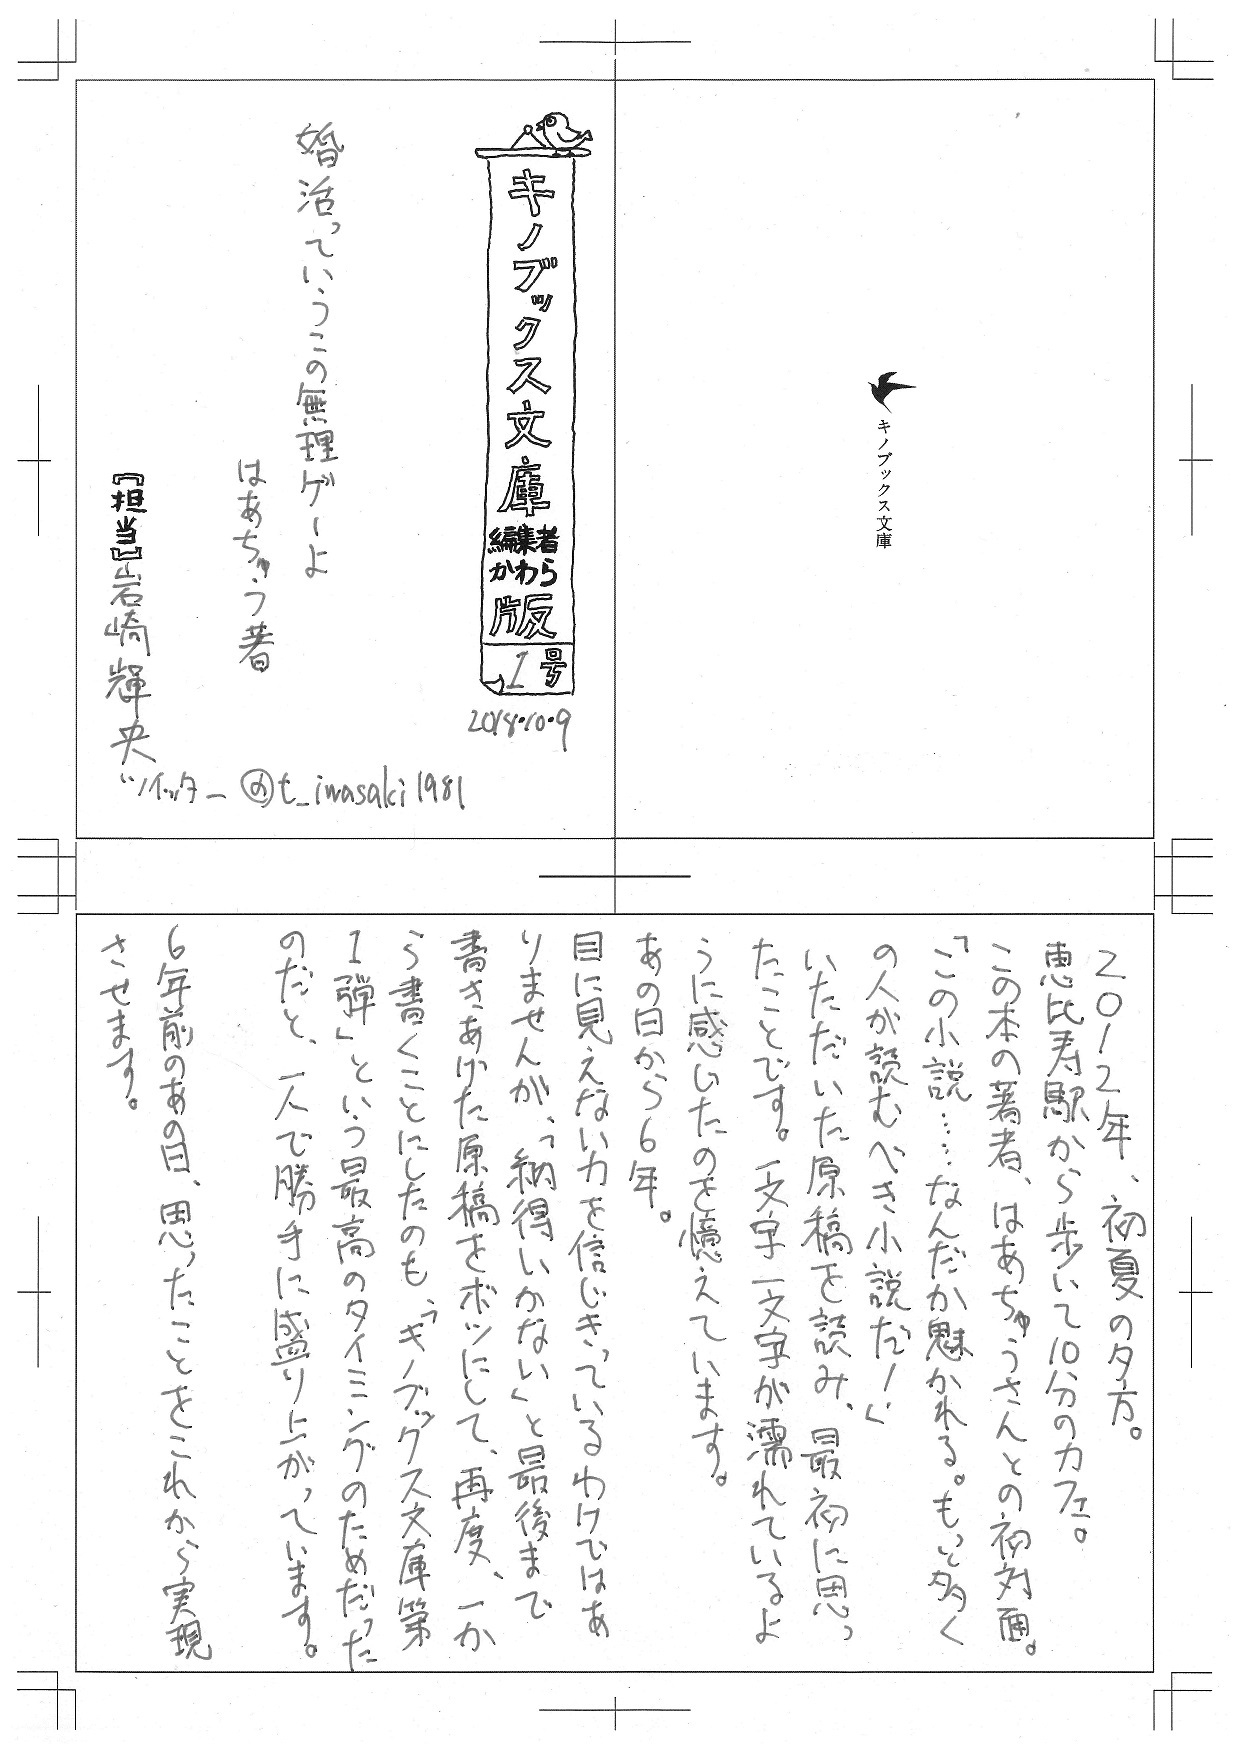 キノブックス文庫
キノブックス文庫
編集者
かわら
版
1号
2018.10.9
婚活っていうこの無理ゲーよ
はあちゅう著
【担当】岩崎輝央
ツイッター @t_iwasaki1981
2012年、初夏の夕方。
恵比寿駅から歩いて10分のカフェ。
この本の著者、はあちゅうさんとの初対面。
「この小説……なんだか魅かれる。もっと多く
の人が読むべき小説だ!」
いただいた原稿を読み、最初に思っ
たことです。一文字一文字が濡れているよ
うに感じたのを憶えています。
あの日から6年。
目に見えない力を信じきっているわけではあ
りませんが、「納得いかない」と最後まで
書きあげた原稿をボツにして、再度、一か
ら書くことにしたのも、「キノブックス文庫第
1弾」という最高のタイミングのためだった
のだと、一人で勝手に盛り上がっています。
6年前のあの日、思ったことをこれから実現
させます。